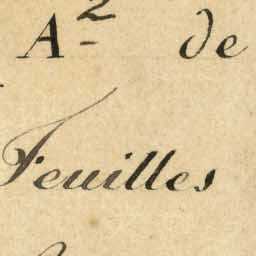 A² de
Feuilles